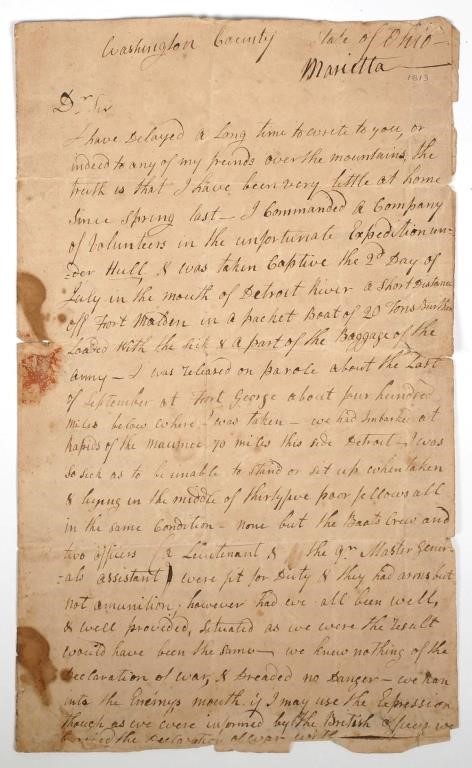 Washington County State of Ohio
Marietta
1813
Dr Sir
I have Delayed a Long time to write to you, or
indeed to any of my freinds over the mountains, the
truth is that I have been very little at home
Since Spring last — I Commanded a Company
of Volunteers in the unfortunate Expedition un-
-der Hull, & was taken Captive the 2d Day of
July in the mouth of Detroit River a Short Distance
off Fort Malden in a packet Boat of 20 Tons Burthen
Loaded with the Sick & a part of the Baggage of the
army — I was released on parole about the Last
of September at Fort George about four hundred
miles below where I was taken — we had Imbarked at
Rapids of the Maumee 70 miles this side Detroit — I was
so sick as to be unable to stand or set up when taken
& lying in the middle of thirtyfive poor fellows all
in the same Condition — none but the Boats Crew and
two officers (a Lieutenant & the Qr Master Gener-
-als assistant) were fit for Duty & they had arms but
not amunition; however had we all been well,
& well provided, Situated as we were the result
would have been the same — we knew nothing of the
Declaration of war, & Dreaded no Danger — we ran
into the Enemys mouth if I may use the Expression
though as we were informed by the British officers we
the Declaration of war